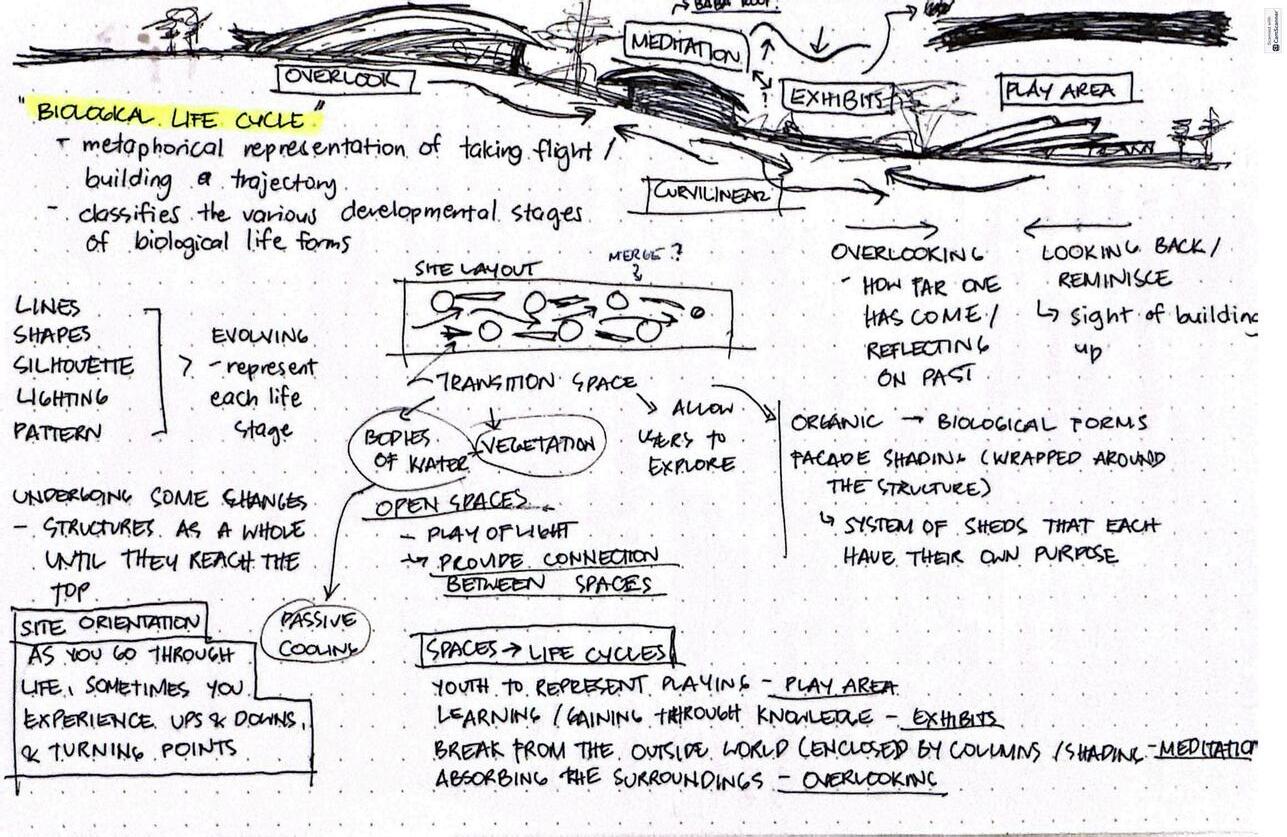 MEDITATION
OVERLOOK
EXHIBITS
PLAY AREA
CURVILINEAR
"BIOLOGICAL LIFE CYCLE"
- metaphorical representation of taking flight /
building a trajectory
- classifies the various developmental stages
of biological life forms
OVERLOOKING
- HOW FAR ONE
HAS COME /
REFLECTING
ON PAST
LOOKING BACK /
REMINISCE
↳ sight of building
up
SITE LAYOUT
MERGE ?
?
LINES
SHAPES
SILHOUETTE
LIGHTING
PATTERN
EVOLVING
- represent
each life
stage
TRANSITION SPACE
BODIES
OF WATER
VEGETATION
ALLOW
USERS TO
EXPLORE
ORGANIC → BIOLOGICAL FORMS
FACADE SHADING (WRAPPED AROUND
THE STRUCTURE)
↳ SYSTEM OF SHEDS THAT EACH
HAVE THEIR OWN PURPOSE
UNDERGOING SOME CHANGES
- STRUCTURES AS A WHOLE
UNTIL THEY REACH THE
TOP
OPEN SPACES
- PLAY OF LIGHT
→ PROVIDE CONNECTION
BETWEEN SPACES
PASSIVE
COOLING
SITE ORIENTATION
AS YOU GO THROUGH
LIFE, SOMETIMES YOU
EXPERIENCE UPS & DOWNS,
& TURNING POINTS
SPACES → LIFE CYCLES
YOUTH TO REPRESENT PLAYING - PLAY AREA
LEARNING / GAINING THROUGH KNOWLEDGE - EXHIBITS
BREAK FROM THE OUTSIDE WORLD (ENCLOSED BY COLUMNS / SHADING - MEDITATION
ABSORBING THE SURROUNDINGS - OVERLOOKING
Scanned with
CamScanner